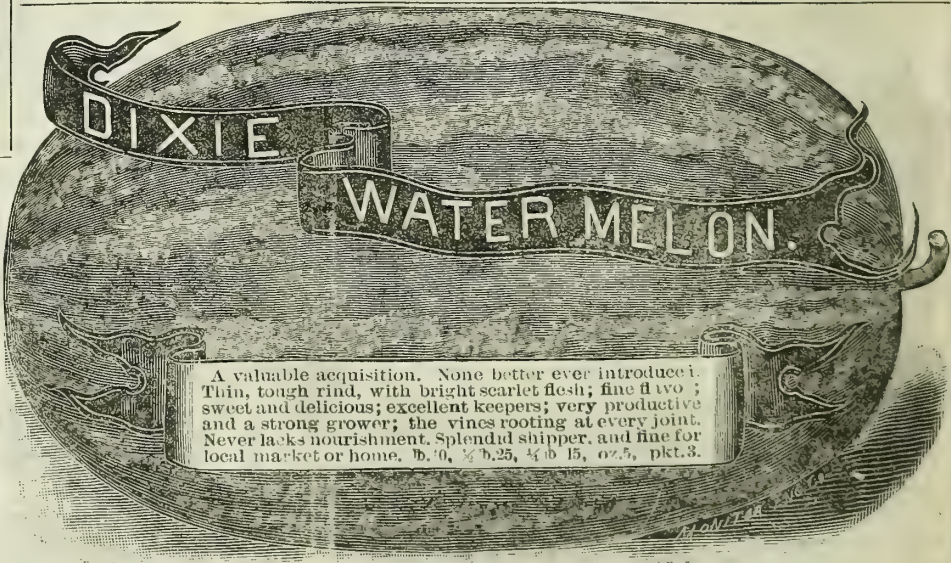 DIXIE
WATER MELON.
A valuable acquisition. None better ever introduce i.
Thin, tough rind, with bright scarlet flesh; fine fl vo ;
sweet and delicious; excellent keepers; very productive
and a strong grower; the vines rooting at every joint.
Never lacks nourishment. Splendid shipper, and fine for
local market or home. 25, 15, oz.5, pkt.3.
MONITOR ENG. CO